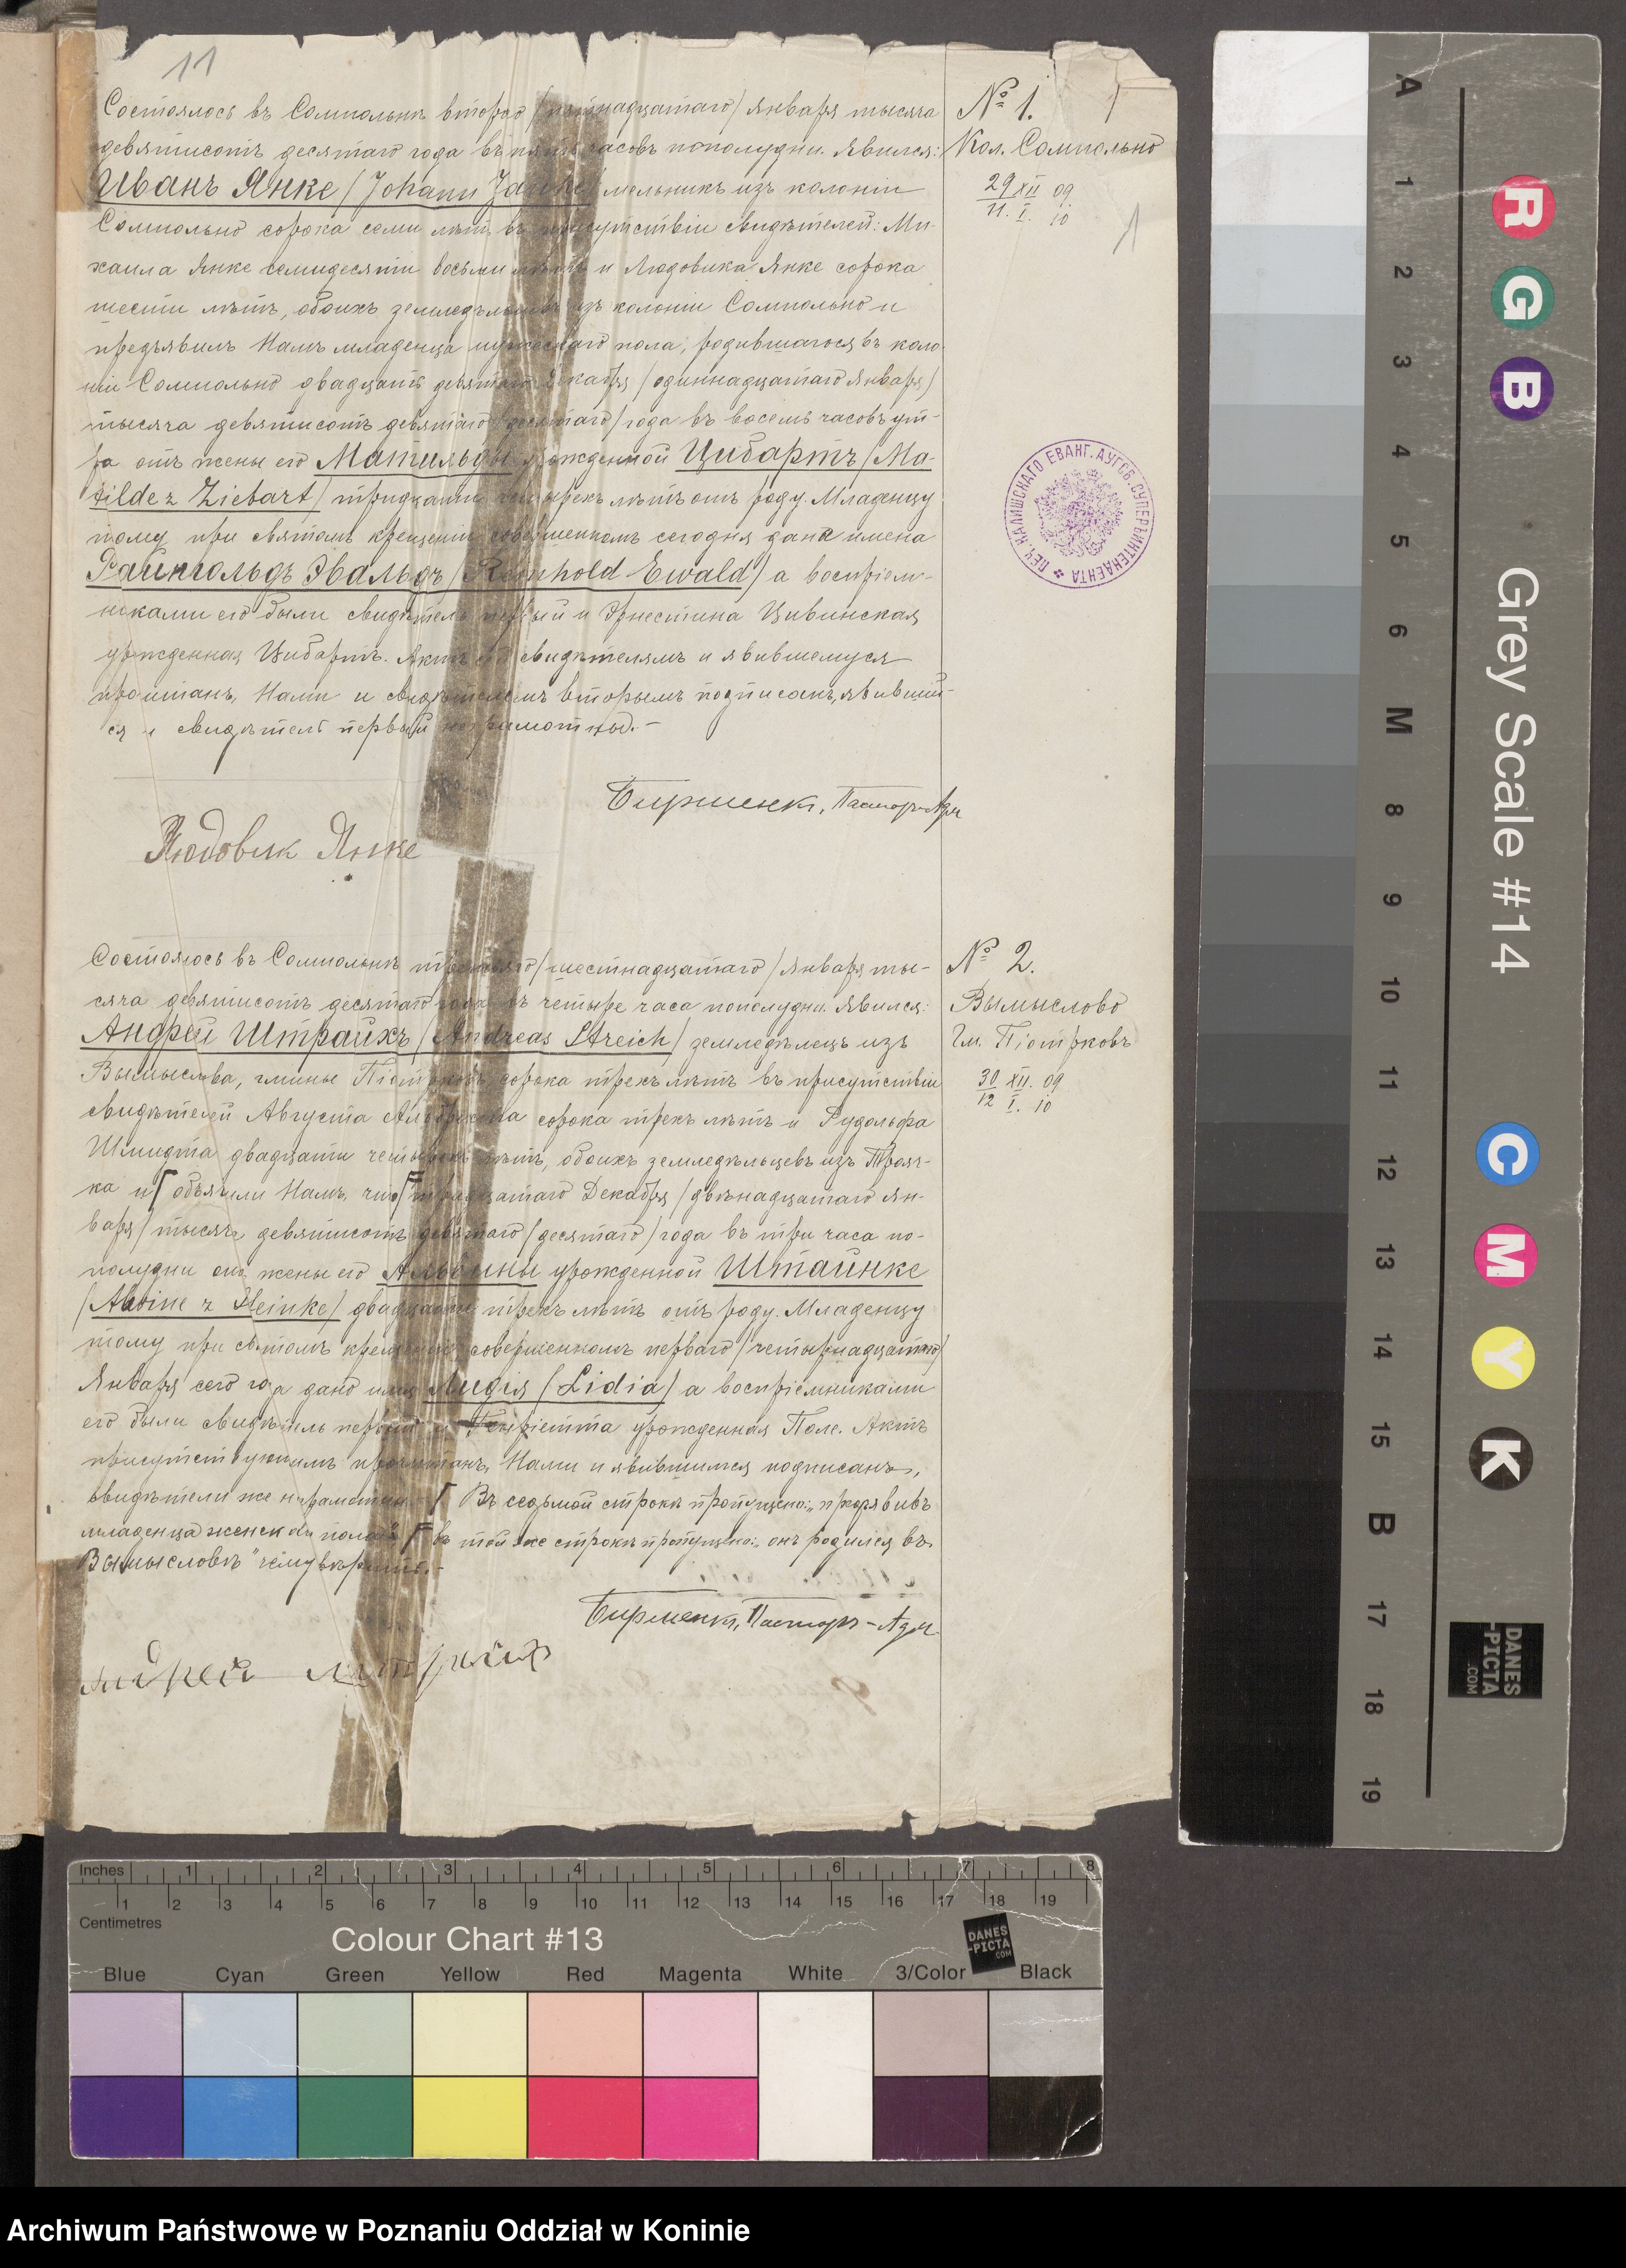 11
Состоялось въ Сомпольнѣ второго /пятнадцатаго/ Января тысяча
девятисотъ десятаго года въ пять часовъ пополудни. Явился:
Иванъ Янке /Johann Janke/ мельникъ изъ колоніи
Сомпольно сорока семи лѣтъ, въ присутствіи свидѣтелей: Ми-
хаила Янке семидесяти восьми лѣтъ и Людовика Янке сорока
шести лѣтъ, обоихъ земледѣльцевъ изъ колоніи Сомпольно и
предъявилъ Намъ младенца мужескаго пола, родившагося въ коло-
ніи Сомпольно двадцать девятаго Декабря /одиннадцатаго Января/
тысяча девятисотъ девятаго /десятаго/ года въ восемь часовъ ут-
ра отъ жены его Матильды урожденной Цибартъ /Ma-
tilde z Ziebart/ тридцати четырехъ лѣтъ отъ роду. Младенцу
тому при святомъ крещеніи совершенномъ сегодня даны имена
Райнгольдъ Эвальдъ /Reinhold Ewald/ а воспріем-
никами его были свидѣтель первый и Эрнестина Цивинская
урожденная Цибартъ. Актъ сей свидѣтелямъ и явившемуся
прочитанъ, Нами и свидѣтелемъ вторымъ подписанъ, явившій-
ся и свидѣтель первый неграмотны.-
Пасторъ-Адм
Людовик Янке
№ 1.
Кол. Сомпольно
29 XII 09
11. I. 10
1
ПЕЧ. КАЛИШСКАГО ЕВАНГ. АУГСБ. СУПЕРЪИНТЕНДЕНТА
Состоялось въ Сомпольнѣ третьяго /шестнадцатаго/ Января ты-
сяча девятисотъ десятаго года въ четыре часа пополудни. Явился:
Андрей Штрайхъ /Andreas Streich/ земледѣлецъ изъ
Вымыслова, гмины Піотрковъ, сорока трехъ лѣтъ въ присутствіи
свидѣтелей Августа сорока трехъ лѣтъ и Рудольфа
Шмидта двадцати четырехъ лѣтъ, обоихъ земледѣльцевъ изъ
ка и объявили Намъ, что тридцатаго Декабря /двѣнадцатаго Ян-
варя/ тысяча девятисотъ девятаго /десятаго/ года въ три часа по-
полудни отъ жены его Альвины урожденной Штайнке
/Alwine z Steinke/ двадцати трехъ лѣтъ отъ роду. Младенцу
тому при святомъ крещеніи, совершенномъ перваго /четырнадцатаго/
Января сего года дано имя Лидія /Lidia/ а воспріемниками
его были свидѣтель первый и Генріетта урожденная Поле. Актъ
присутствующимъ прочитанъ, Нами и явившимся подписанъ,
свидѣтели же неграмотны. Въ седьмой строкѣ пропущено: „предъявивъ
младенца женскаго пола" въ той же строкѣ пропущено: „онъ родился въ
Вымысловѣ"
Пасторъ-Адм.
андрей штрайх
№ 2.
Вымыслово
Гм. Піотрковъ
30 XII. 09
12 I. 10
A 1 2 3 4 5 6 M 8 9 10 11 12 13 14 15 B 17 18 19
R G B
Grey Scale #14
C M Y K
DANES
-PICTA
.COM
Inches 1 2 3 4 5 6 7 8
1 2 3 4 5 6 7 8 9 10 11 12 13 14 15 16 17 18 19
Centimetres
Colour Chart #13
DANES
-PICTA
.COM
Blue Cyan Green Yellow Red Magenta White 3/Color Black
Archiwum Państwowe w Poznaniu Oddział w Koninie